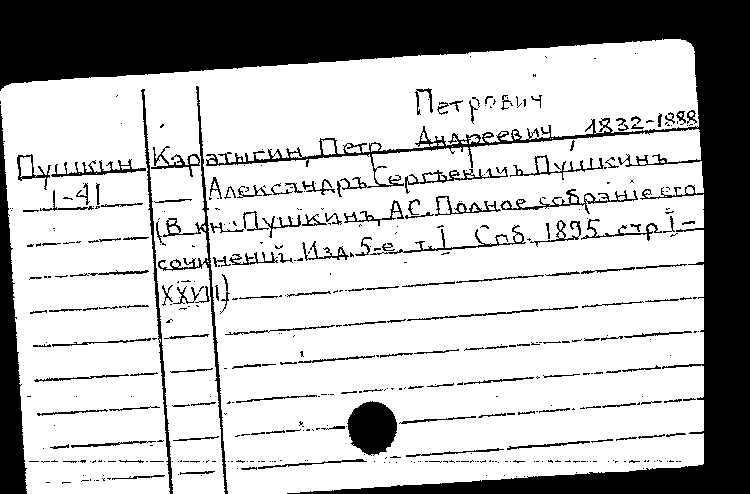 Петрович
Пушкин Каратыгин, Петр Андреевич, 1832-1888
1-41 — Александръ Сергѣевичъ Пушкинъ
(В кн: Пушкинъ, А.С. Полное собрание его
сочинений. Изд. 5-е. т. I Спб., 1895. стр I-
XXVIII)